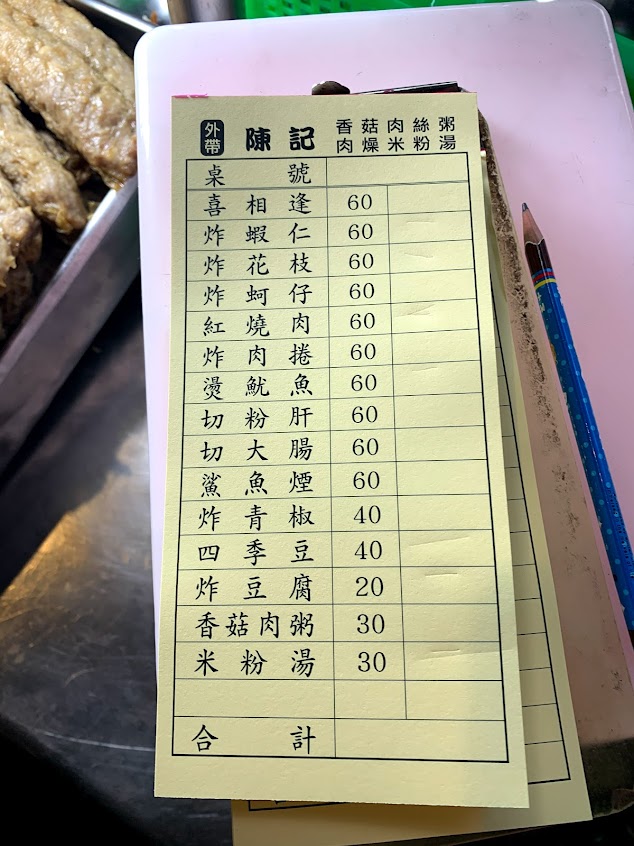 外帶 陳記 香菇肉絲粥
肉燥米粉湯
桌號
喜相逢 60
炸蝦仁 60
炸花枝 60
炸蚵仔 60
紅燒肉 60
炸肉捲 60
燙魷魚 60
切粉肝 60
切大腸 60
鯊魚煙 60
炸青椒 40
四季豆 40
炸豆腐 20
香菇肉粥 30
米粉湯 30
合計